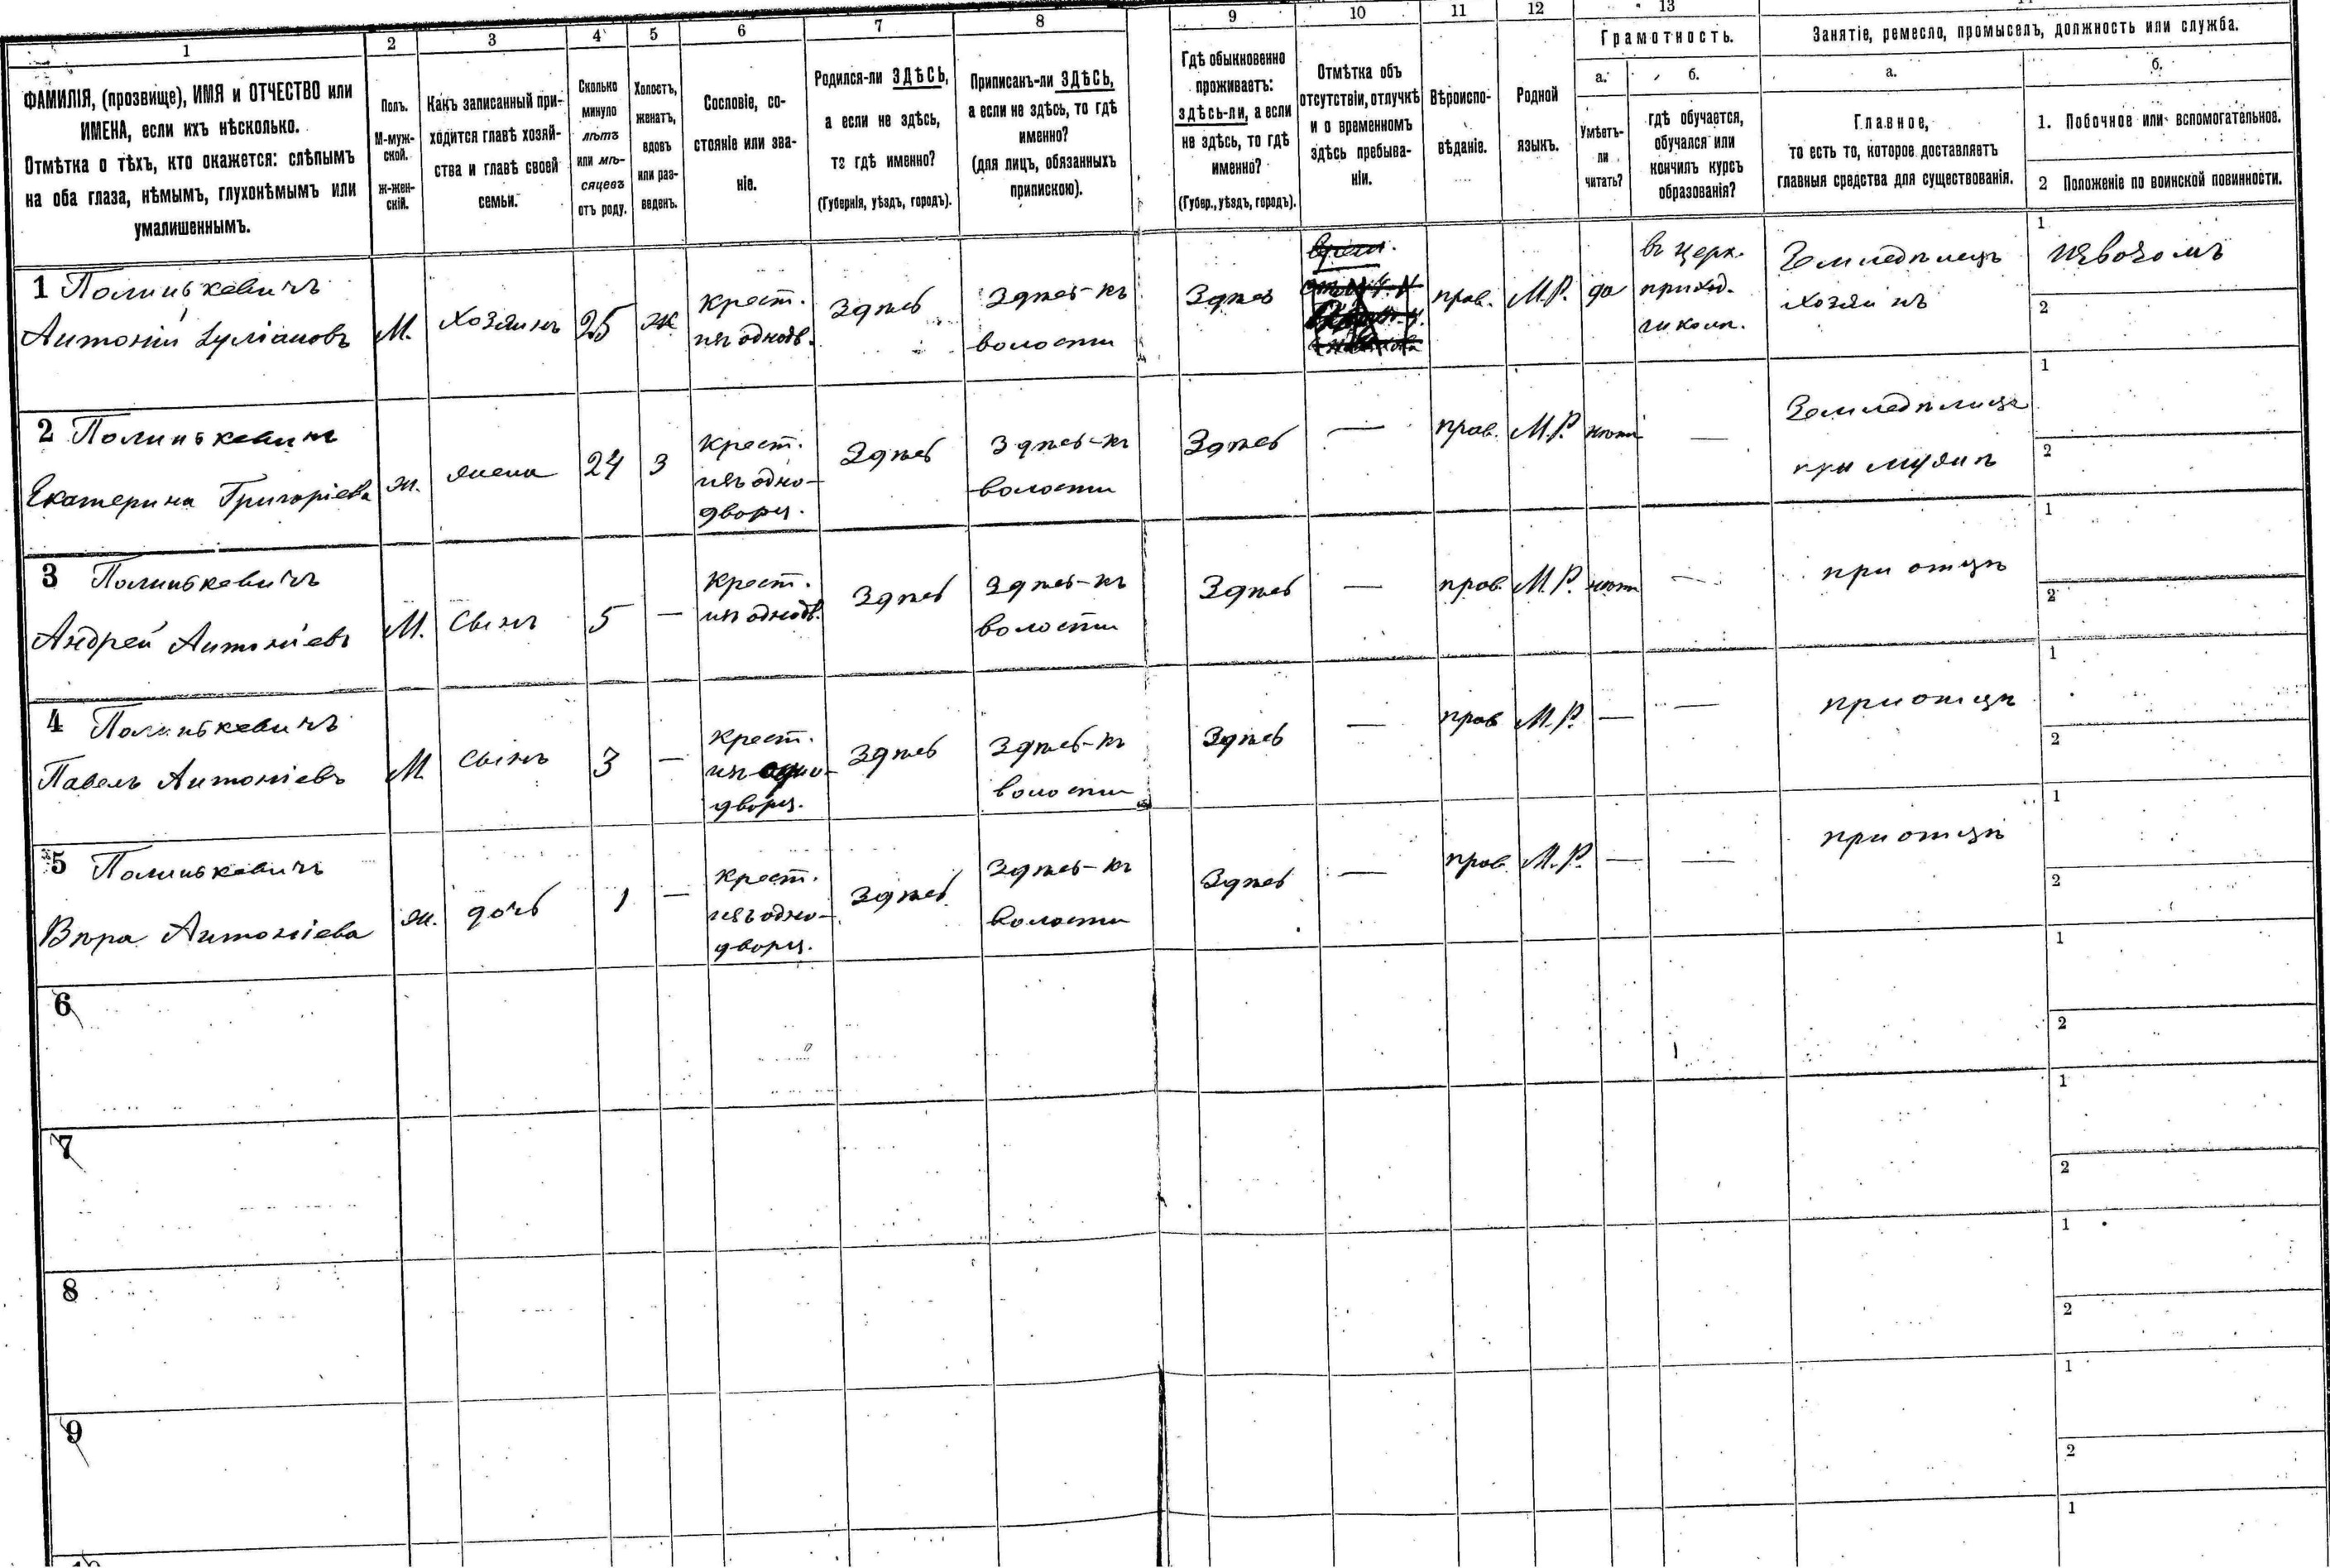 1
2
3
4
5
6
7
8
9
10
11
12
13
ФАМИЛІЯ, (прозвище), ИМЯ и ОТЧЕСТВО или
ИМЕНА, если ихъ нѣсколько.
Отмѣтка о тѣхъ, кто окажется: слѣпымъ
на оба глаза, нѣмымъ, глухонѣмымъ или
умалишеннымъ.
Полъ.
М-муж-
ской.
ж-жен-
скій.
Какъ записанный при-
ходится главѣ хозяй-
ства и главѣ своей
семьи.
Сколько
минуло
лѣтъ
или мѣ-
сяцевъ
отъ роду.
Холостъ,
женатъ,
вдовъ
или раз-
веденъ.
Сословіе, со-
стояніе или зва-
ніе.
Родился-ли ЗДѢСЬ,
а если не здѣсь,
то гдѣ именно?
(Губернія, уѣздъ, городъ).
Приписанъ-ли ЗДѢСЬ,
а если не здѣсь, то гдѣ
именно?
(для лицъ, обязанныхъ
припискою).
Гдѣ обыкновенно
проживаетъ:
здѣсь-ли, а если
не здѣсь, то гдѣ
именно?
(Губер., уѣздъ, городъ).
Отмѣтка объ
отсутствіи, отлучкѣ
и о временномъ
здѣсь пребыва-
ніи.
Вѣроиспо-
вѣданіе.
Родной
языкъ.
Грамотность.
а.
б.
Умѣетъ-
ли
читать?
гдѣ обучается,
обучался или
кончилъ курсъ
образованія?
Занятіе, ремесло, промыселъ, должность или служба.
а.
б.
Главное,
то есть то, которое доставляетъ
главныя средства для существованія.
1. Побочное или вспомогательное.
2 Положеніе по воинской повинности.
1 Полинькевичъ
Антоній Іуліановъ
М.
хозяинъ
25
ж
крест.
изъ однодв.
Здѣсь
Здѣсь-къ
волости
Здѣсь
прав.
М.Р.
да
въ церк.
приход.
школѣ.
Земледѣлецъ
хозяинъ
1
извозомъ
2
2 Полинькевичъ
Екатерина Григоріева
ж.
жена
24
З
крест.
изъ одно-
дворц.
Здѣсь
Здѣсь-къ
волости
Здѣсь
—
прав.
М.Р.
нѣтъ
—
Земледѣлица
при мужѣ
1
2
3 Полинькевичъ
Андрей Антоніевъ
М.
сынъ
5
—
крест.
изъ однодв.
Здѣсь
Здѣсь-къ
волости
Здѣсь
—
прав.
М.Р.
нѣтъ
—
при отцѣ
1
2
4 Полинькевичъ
Павелъ Антоніевъ
М
сынъ
3
—
крест.
изъ одно-
дворц.
Здѣсь
Здѣсь-къ
волости
Здѣсь
—
прав
М.Р.
—
—
при отцѣ
1
2
5 Полинькевичъ
Вѣра Антоніева
ж.
дочь
1
—
крест.
изъ одно-
дворц.
Здѣсь
Здѣсь-къ
волости
Здѣсь
—
прав.
М.Р.
—
—
при отцѣ
1
2
6
1
2
7
1
2
8
1
2
9
1
2
1